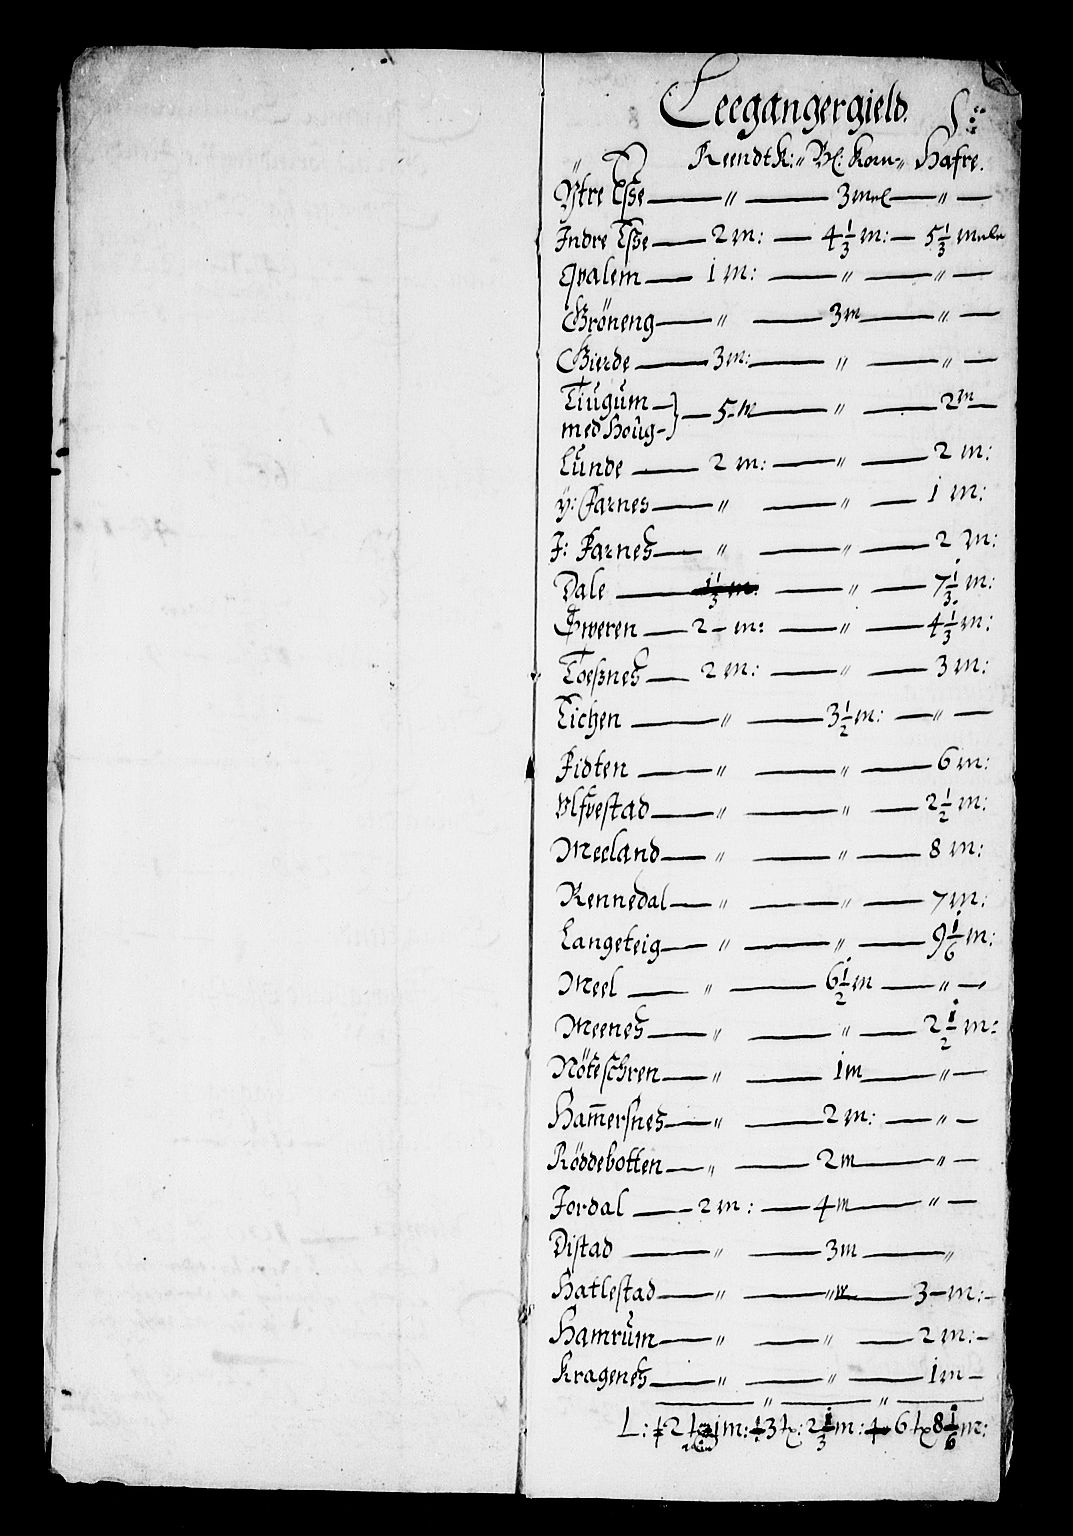 Leegangergield.
Reendt k: „ Bl: Korn „ Hafre.
Ÿtre Esse — „ — 3 mel — „ —
Indre Esse — 2 m: — 4 1/3 m: — 5 1/3 mele
Qvalem — 1 m: — „ — „ —
Gröneng — „ — 3 m — „ —
Gierde — 3 m: — „ — „ —
Tiugum — } — 5 m — „ — 2 m —
med Houg — }
Lunde — 2 m: — „ — 2 m:
ÿ: Farnes — „ — „ — 1 m:
J: Farnes — „ — „ — 2 m:
Dale — 1 1/3 m: — „ — 7 1/3 m:
Sweren — 2 — m: — „ — 4 1/3 m:
Toesnes — 2 m: — „ — 3 m:
Tichen — „ — 3 1/2 m: — „ —
Fidten — „ — „ — 6 m:
Ulfvestad — „ — „ — 2 1/2 m:
Meeland — „ — „ — 8 m:
Rennedal — „ — „ — 7 m:
Langeteig — „ — „ — 9 1/6 m:
Meel — „ — 6 1/2 m — „ —
Meenes — „ — „ — 2 1/2 m:
Nöteschren — „ — 1 m — „ —
Ham̄ersnes — „ — 2 m: — „ —
Röddebotten — „ — 2 m — „ —
Jordal — 2 m: — 4 m — „ —
Distad — „ — 3 m — „
Hatlestad — „ — „ — 3 — m: —
Hamrum — „ — „ — 2 m: —
Kragenes — „ — „ — 1 m —
L: 2 1 m: 3 tx: 2 1/3 m: 6 tx 8 1/6 m: